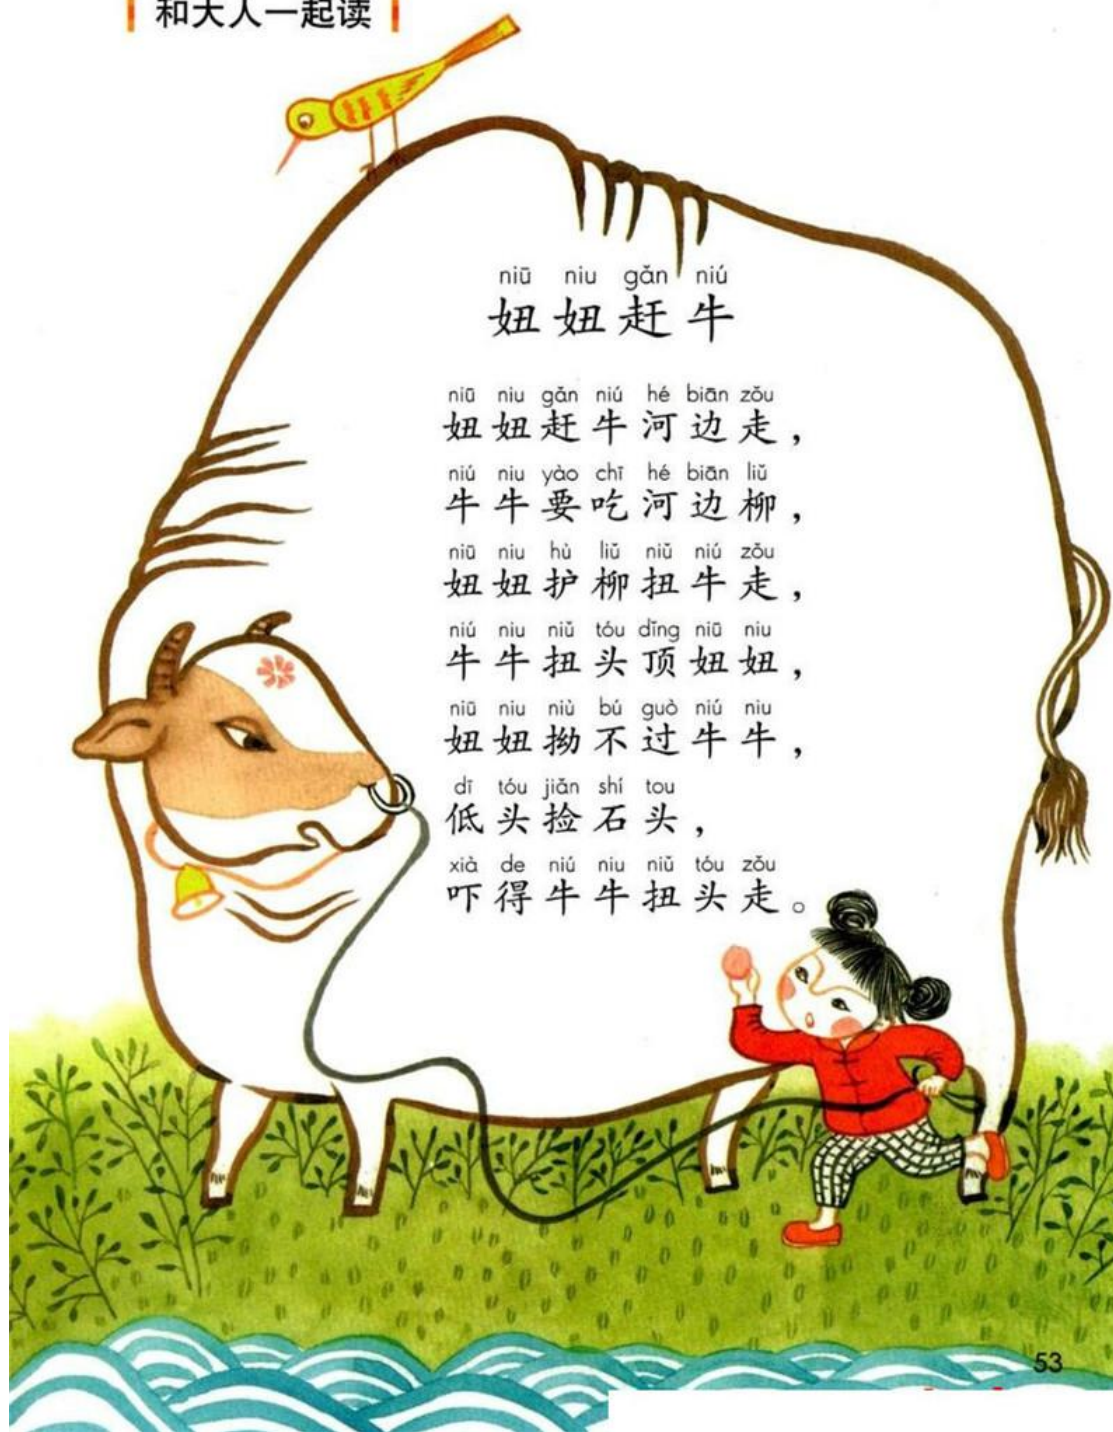 和大人一起读
niū niu gǎn niú
妞妞赶牛
niū niu gǎn niú hé biān zǒu
妞妞赶牛河边走，
niú niu yào chī hé biān liǔ
牛牛要吃河边柳，
niū niu hù liǔ niǔ niú zǒu
妞妞护柳扭牛走，
niú niu niǔ tóu dǐng niū niu
牛牛扭头顶妞妞，
niū niu niù bú guò niú niu
妞妞拗不过牛牛，
dī tóu jiǎn shí tou
低头捡石头，
xià de niú niu niǔ tóu zǒu
吓得牛牛扭头走。
53